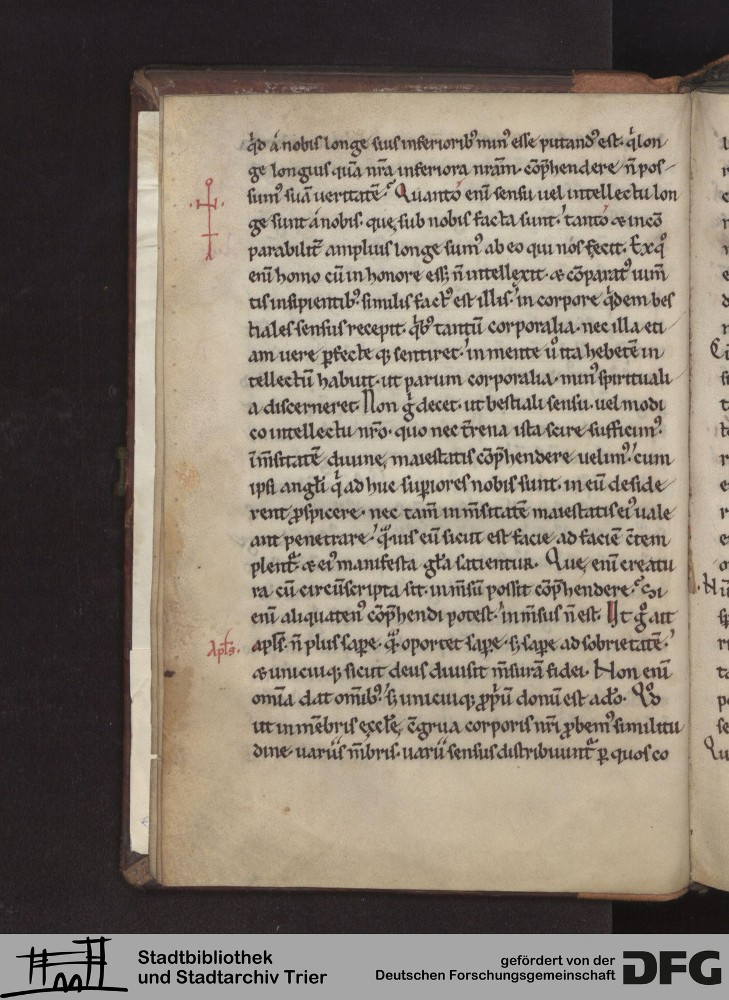 q̇d á nobis longe suis inferiorib᷒ min᷒ esse putand᷒ est. q̇ lon
ge longius quā nr̄a inferiora nr̄am. cōp̄hendere n̄ pos-
sum᷒ suā veritatē. Quanto eni sensu uel intellectu lon
ge sunt á nobis. quę sub nobis facta sunt. tanto & incō
parabilit̄ amplius longe sum᷒ ab eo qui nos fecit. Ex q᷒
eni homo cū in honore ess& n̄ intellexit. & cōparat᷒ ium̄
tis insipientib᷒. similis fact᷒ est illis. in corpore q̇dem bes
tiales sensus recepit. q̇b᷒ tantū corporalia. nec illa eti
am uere ꝑfecte q; sentiret. in mente ů ita hebetē in
tellectū habuit. ut parum corporalia. min᷒ spirituali
a discerneret. Non g̊ decet. ut bestiali sensu. uel modi
co intellectu nr̄o. quo nec t̄rena ista scire sufficim᷒.
īm̄sitatē diuinę maiestatis cōp̄hendere uelim᷒. cum
ipsi angl̄i q̇ ad huc supiores nobis sunt. in eū deside
rent ꝓspicere. nec tam̄ in m̄sitatē maiestatis ei᷒ uale
ant penetrare. q̇uis eū sicut est facie ad faciē c̄tem
plent᷑. & ei᷒ manifesta gl̄a satientur. Quę eni creatu
ra cū circūscripta sit. in m̄sū possit cōp̄hendere. Si
eni aliquaten᷒ cōp̄hendi potest. in m̄sus n̄ est. Vt g̊ ait
Apl̄s.
apl̄s. n̄ plus saꝑe. q̄ oportet saꝑe. s; saꝑe ad sobrietatē.
& unicuiq; sicut deus diuisit m̄surā fidei. Non eni
om̄ia dat om̄ib᷒. s; unicuiq; ꝓp̄ū donū est a dō. Qd̄
ut in mēbris ęccl̄ę c̄grua corporis nr̄i ꝓbem᷒ similitu
dine. uariis m̄bris. uarii sensus distribuunt᷑ ꝑ quos co
Stadtbibliothek
und Stadtarchiv Trier
gefördert von der
Deutschen Forschungsgemeinschaft
DFG